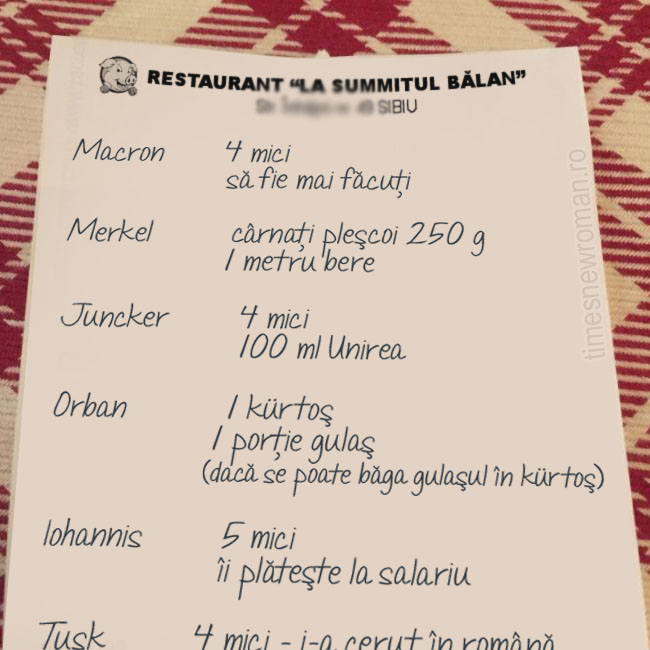 RESTAURANT "LA SUMMITUL BĂLAN"
SIBIU
Macron 4 mici
să fie mai făcuți
Merkel cârnați pleşcoi 250 g
1 metru bere
Juncker 4 mici
100 ml Unirea
Orban 1 kürtoş
1 porție gulaş
(dacă se poate băga gulaşul în kürtoş)
Iohannis 5 mici
îi plăteşte la salariu
Tusk 4 mici - i-a cerut în română
timesnewroman.ro